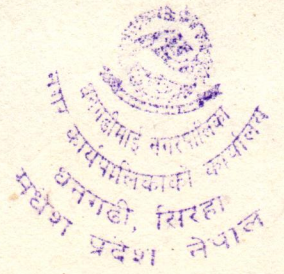 धनगढीमाई नगरपालिका
नगर कार्यपालिकाको कार्यालय
धनगढी, सिरहा
मधेश प्रदेश नेपाल